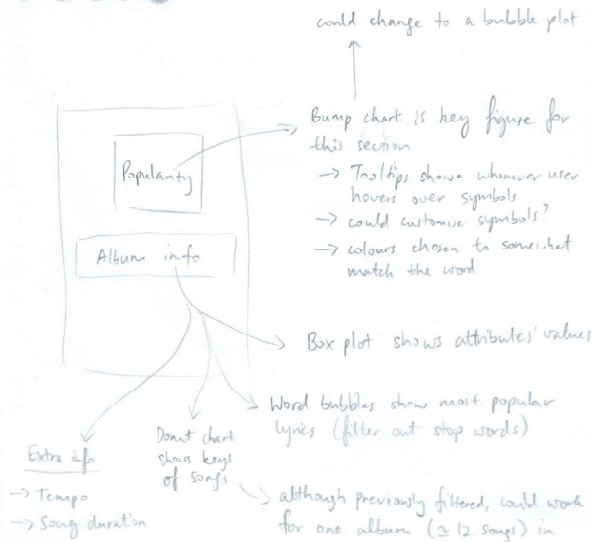 could change to a bubble plot
Bump chart is key figure for
this section
→ Tooltips shown whenever user
hovers over symbols
→ could customise symbols?
→ colours chosen to somewhat
match the word
Popularity
Album info
Box plot shows attributes' values
Word bubbles show most popular
lyrics (filter out stop words)
Donut chart
shows keys
of songs
Extra info
→ Tempo
→ Song duration
although previously filtered, could work
for one album (≃ 12 songs) in